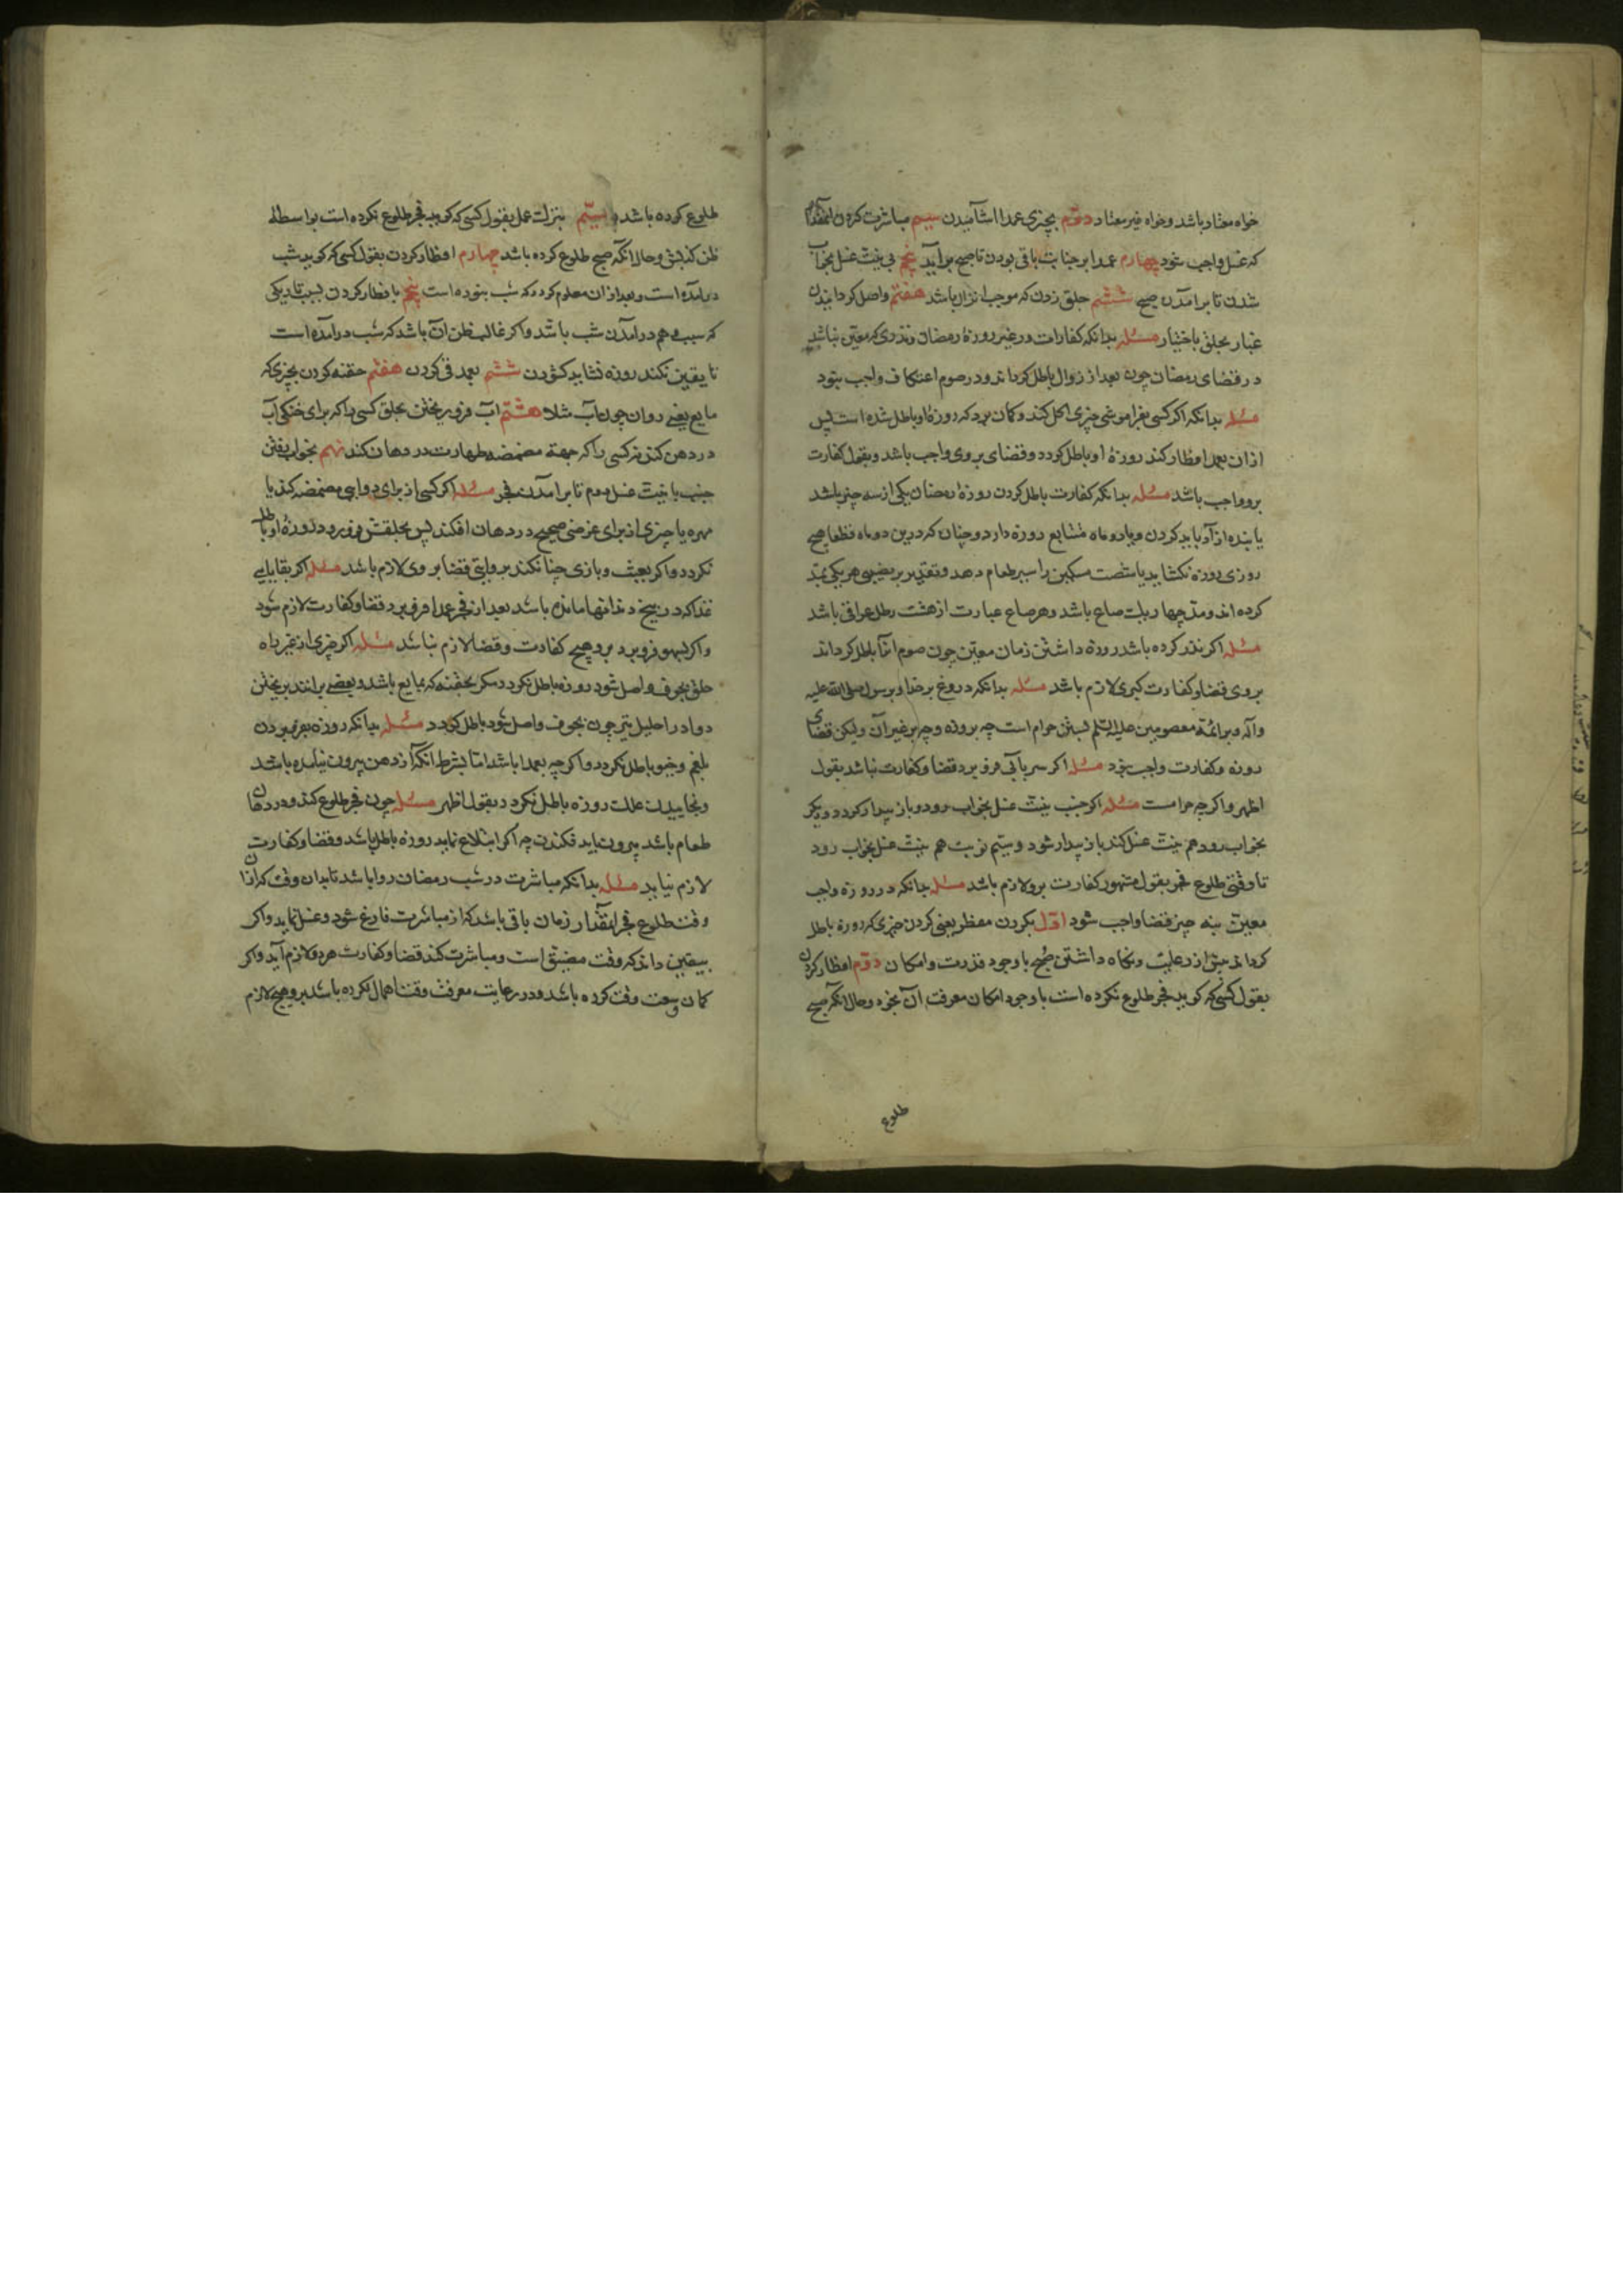 خواه معتاد باشد و خواه غیر معتاد دوّم بچیزی عمدا اشامیدن سیم مباشرت کردن انمقدار
که غسل واجب شود چهارم عمدا بر جنابت باقی بودن تا صبح برآید پنجم بی نیت غسل بخواب
شدن تا برآمدن صبح ششم جلق زدن که موجب انزال باشد هفتم واصل کردانیدن
غبار بحلق باختیار مسئله بدانکه کفارات در غیر روزهٔ رمضان و نذری که معیّن نباشد
در قضای رمضان چون بعد از زوال باطل کرداند و در صوم اعتکاف واجب بنود
مسئله بدانکه اکر کسی بفراموشی چیزی اکل کند و کمان برد که روزهٔ او باطل شده است پس
از ان عمدا افطار کند روزهٔ او باطل کردد و قضای بروی واجب باشد و بقولی کفارت
برو واجب باشد مسئله بدانکه کفارت باطل کردن روزهٔ رمضان یکی از سه چیز باشد
یا بنده ازآد باید کردن و یا دو ماه متتابع روزه دارد و چنان که درین دو ماه قطعا هیچ
روزی روزه نکشاید یا شصت مسکین را سیر طعام دهد و تقدیر بر بعضی هر یکی بمدّ
کرده اند و مدّ چهار یک صاع باشد و هر صاع عبارت از هشت رطل عراقی باشد
مسئله اکر نذر کرده باشد روزه داشتن زمان معیّن چون صوم انرا باطل کرداند
بروی قضا و کفارت کبری لازم باشد مسئله بدانکه دروغ بر خدا و بر رسول صلی الله علیه
وآله و بر ائمهٔ معصومین علیه السلم بستن حرام است چه بروزه و چه بر غیر آن ولیکن قضای
روزه و کفارت واجب بنود مسئله اکر سر بآبی فرو برد قضا و کفارت نباشد بقول
اظهر و اکر چه حرامست مسئله اکر جنب بنیت غسل بخواب رود و باز بیدار کردد و دیکر
بخواب رود هم بنیت غسل کند باز بیدار شود و سیّم نوبت هم بنیت غسل بخواب رود
تا وقتی طلوع فجر بقول مشهور کفارت برو لازم باشد مسئله بدانکه در روزه واجب
معیّن بنه چیز قضا واجب شود اوّل بکردن مفطر یعنی کردن چیزی که روزه باطل
کرداند پیش از رعایت و نکاه داشتن صبح با وجود قدرت و امکان دوّم افطار کردن
بقول کسی که کوید فجر طلوع نکرده است با وجود امکان معرفت آن بخود و حال انکه صبح
طلوع
طلوع کرده باشد و سیّم بترک عمل بقول کسی که کوید فجر طلوع نکرده است بواسطه
ظن کذبش و حال انکه صبح طلوع کرده باشد چهارم افطار کردن بقول کسی که کوید شب
درآمده است و بعد از ان معلوم کردد که شب بنوده است پنجم با فطار کردن بسبب تاریکی
که سبب وهم درآمدن شب باشد و اکر غالب ظن آن باشد که شب درآمده است
تا یقین نکند روزه نشاید کشودن ششم بعمد قی کردن هفتم حقنه کردن بچیزی که
مایع یعنی روان چون آب مثلا هشتم آب فرو ریختن بحلق کسی را که برای خنکی آب
در دهن کند نه کسی را که جهة مضمضه طهارت در دهان کند نهم بخواب رفتن
جنب با نیت غسل دوم تا برآمدن فجر مسئله اکر کسی از برای دوایی مضمضه کند یا
مهره یا چیزی از برای غرضی صحیح در دهان افکند پس بحلقش فرو رود روزهٔ او باطل
نکردد و اکر بعبث و بازی چنان کند بروایتی قضا بروی لازم باشد مسئله اکر بقایای
غذا که در بیخ دندانها مانده باشد بعد از فجر عمدا فرو برد قضا و کفارت لازم شود
و اکر بسهو فرو برد برو هیچ کفارت و قضا لازم نباشد مسئله اکر چیزی از غیر راه
حلق بجوف واصل شود روزه باطل نکردد مکر بحقنه که بمایع باشد و بعضی برانند بریختن
دوا در احلیل نیز چون بجوف واصل شود باطل کردد مسئله بدانکه روزه بفرو بردن
بلغم و خیو باطل نکردد و اکر چه بعمدا باشد اما بشرط انکه از دهن بیرون نیامده باشد
و بخاییدن علک روزه باطل نکردد بقول اظهر مسئله چون فجر طلوع کند و در دهان
طعام باشد بیرون باید فکندن چه اکر ابتلاع نماید روزه باطل باشد و قضا و کفارت
لازم نیاید مسئله بدانکه مباشرت در شب رمضان روا باشد تا بدان وقت که از ان
وقت طلوع فجر انمقدار زمان باقی باشد که از مباشرت فارغ شود و غسل نماید و اکر
بیقین داند که وقت مضیق است و مباشرت کند قضا و کفارت هر دو لازم آید و اکر
کمان وسعت وقت کرده باشد و در رعایت معرفت وقت اهمال نکرده باشد برو هیچ لازم